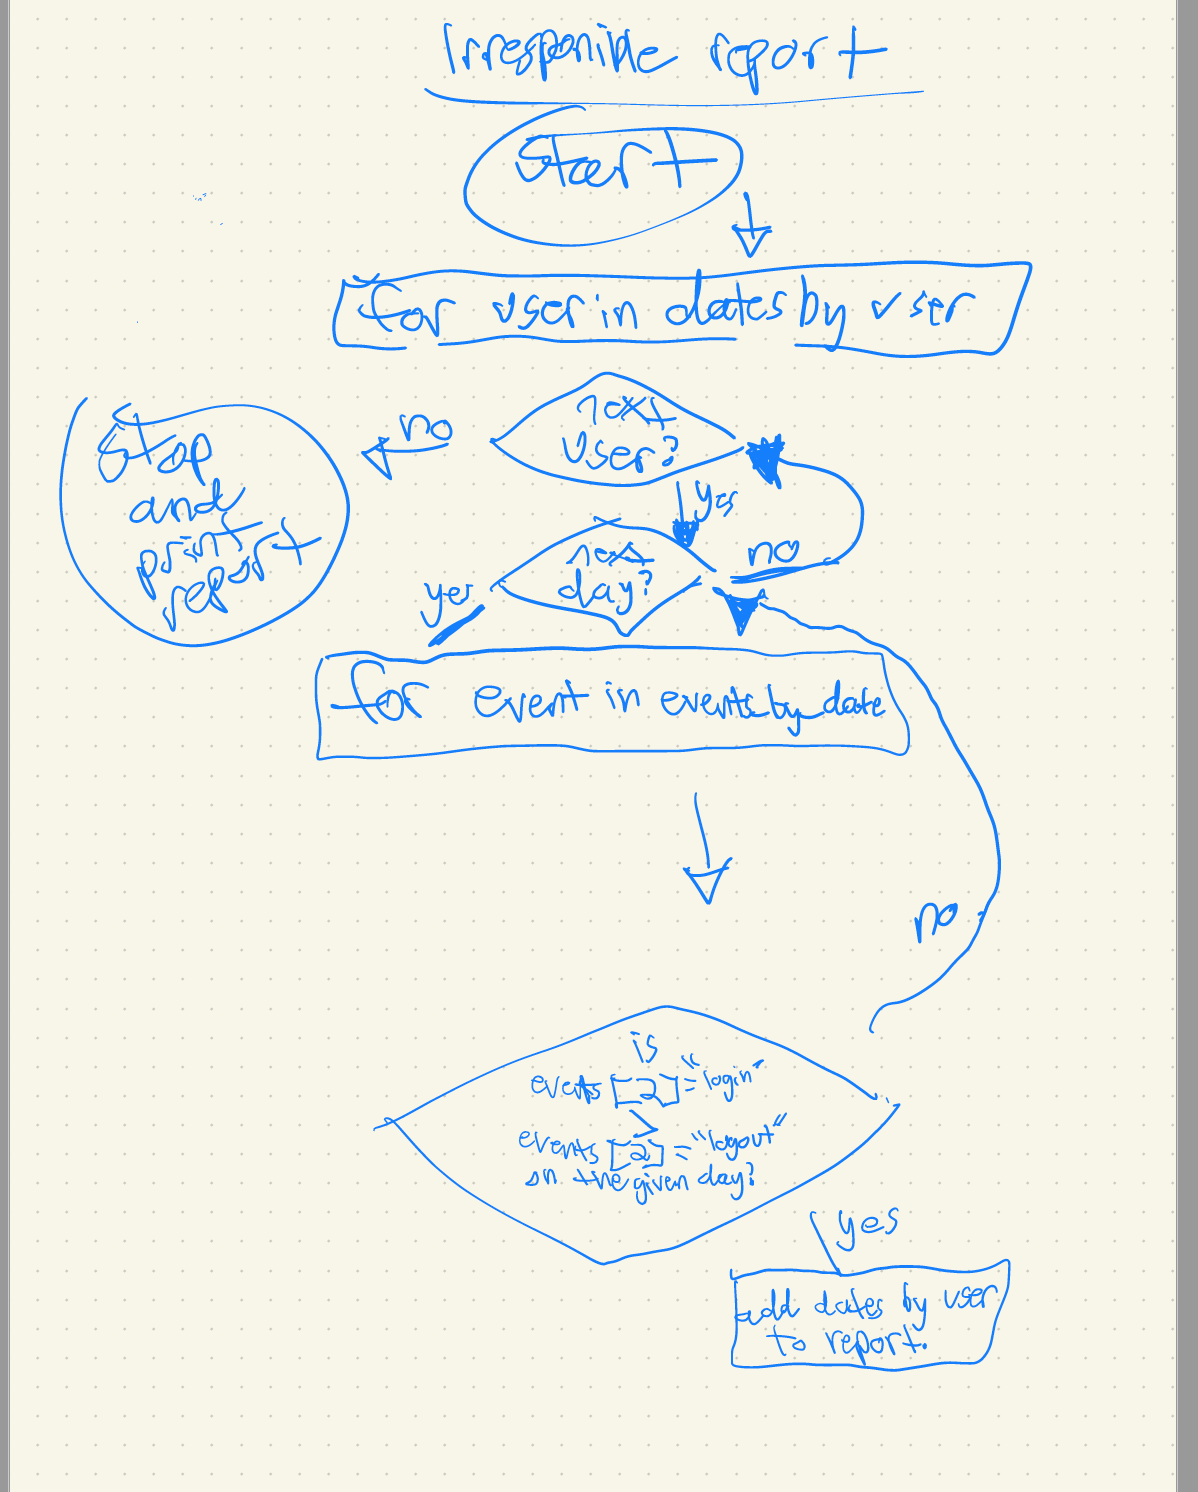 Irresponible report
Start
for user in dates by user
next
user?
no
Stop
and
print
report
yes
next
day?
no
yes
for event in events_by_date
no
is
events [2] = "login"
>
events [2] = "logout"
on the given day?
yes
add dates by user
to report.